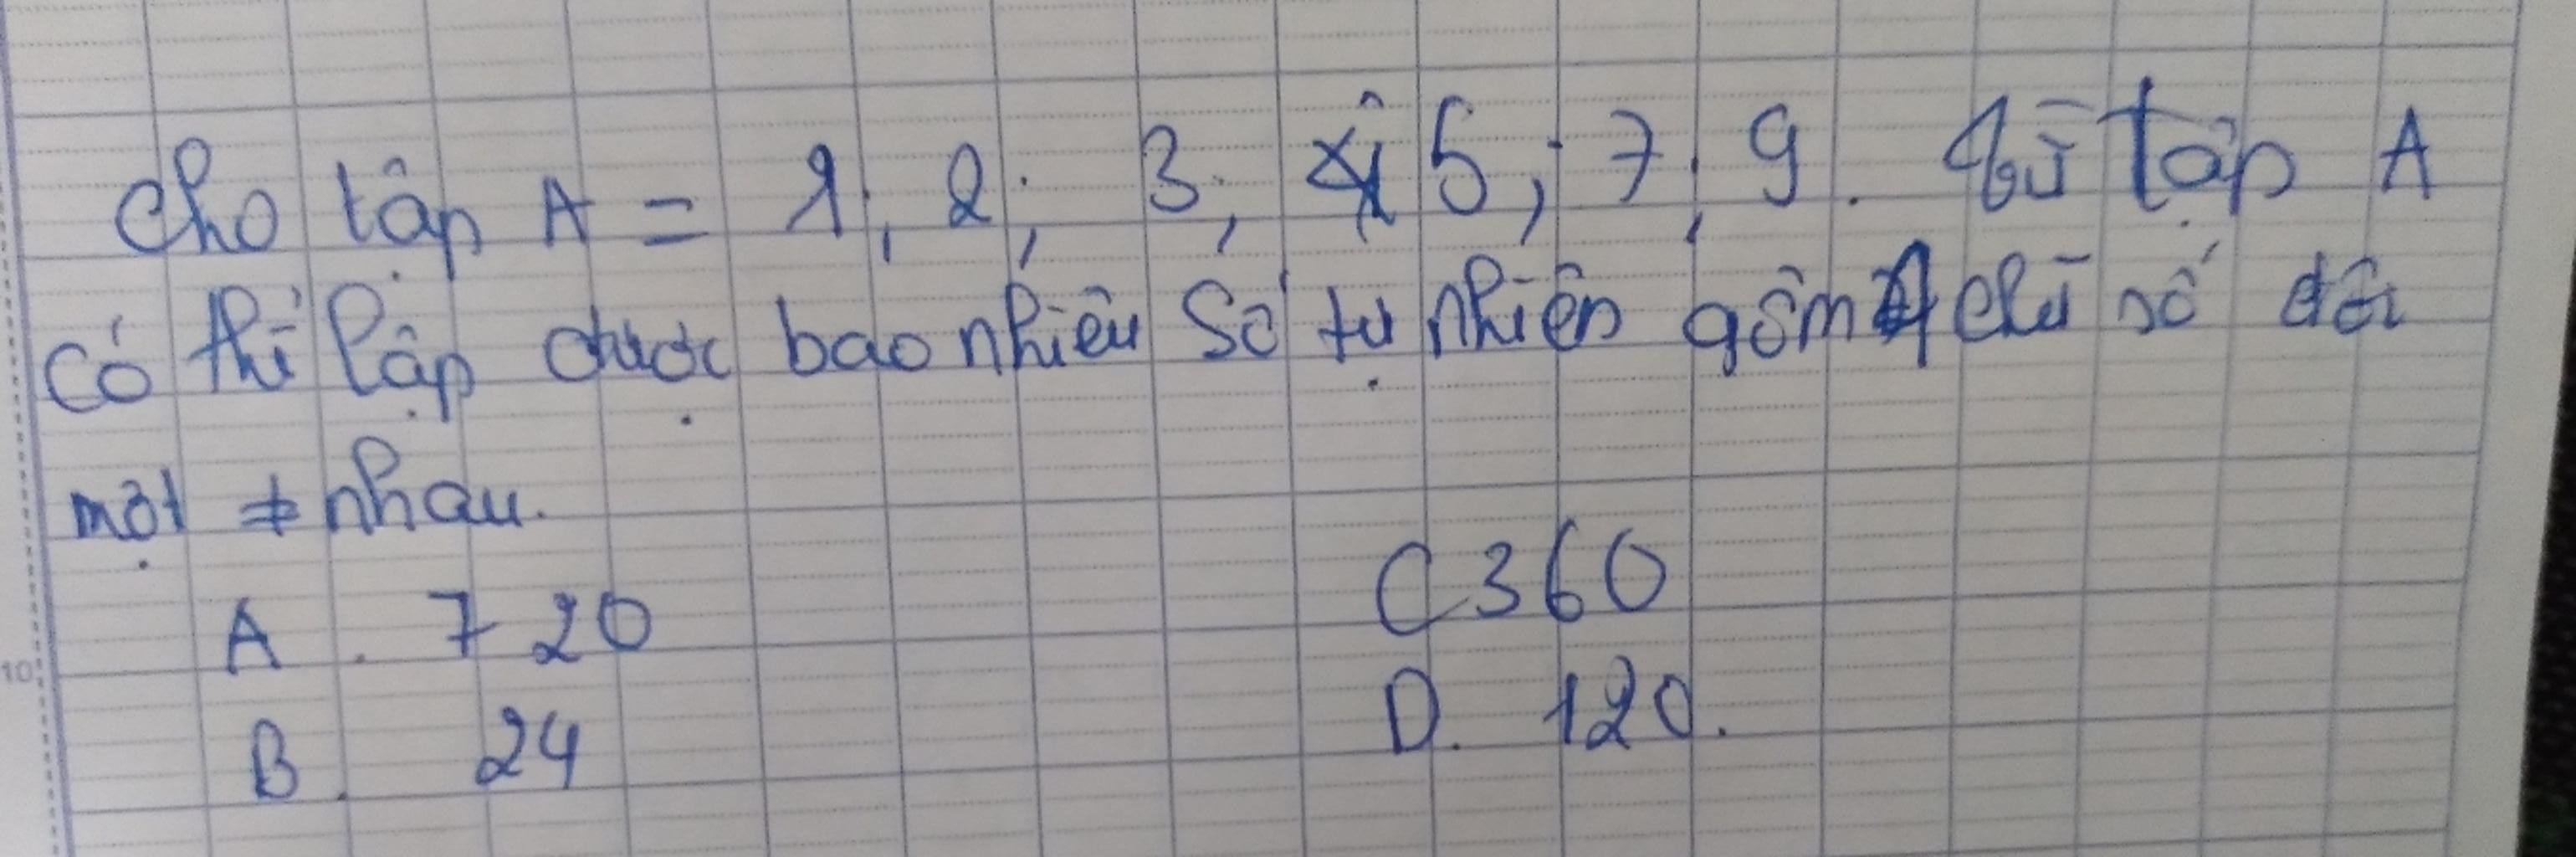 Cho tập A = 1; 2; 3; 5; 7; 9. Từ tập A
có thể lập được bao nhiêu số tự nhiên gồm 4 chữ số đôi
một ≠ nhau.
A. 720
C 360
B. 24
D. 120.
10